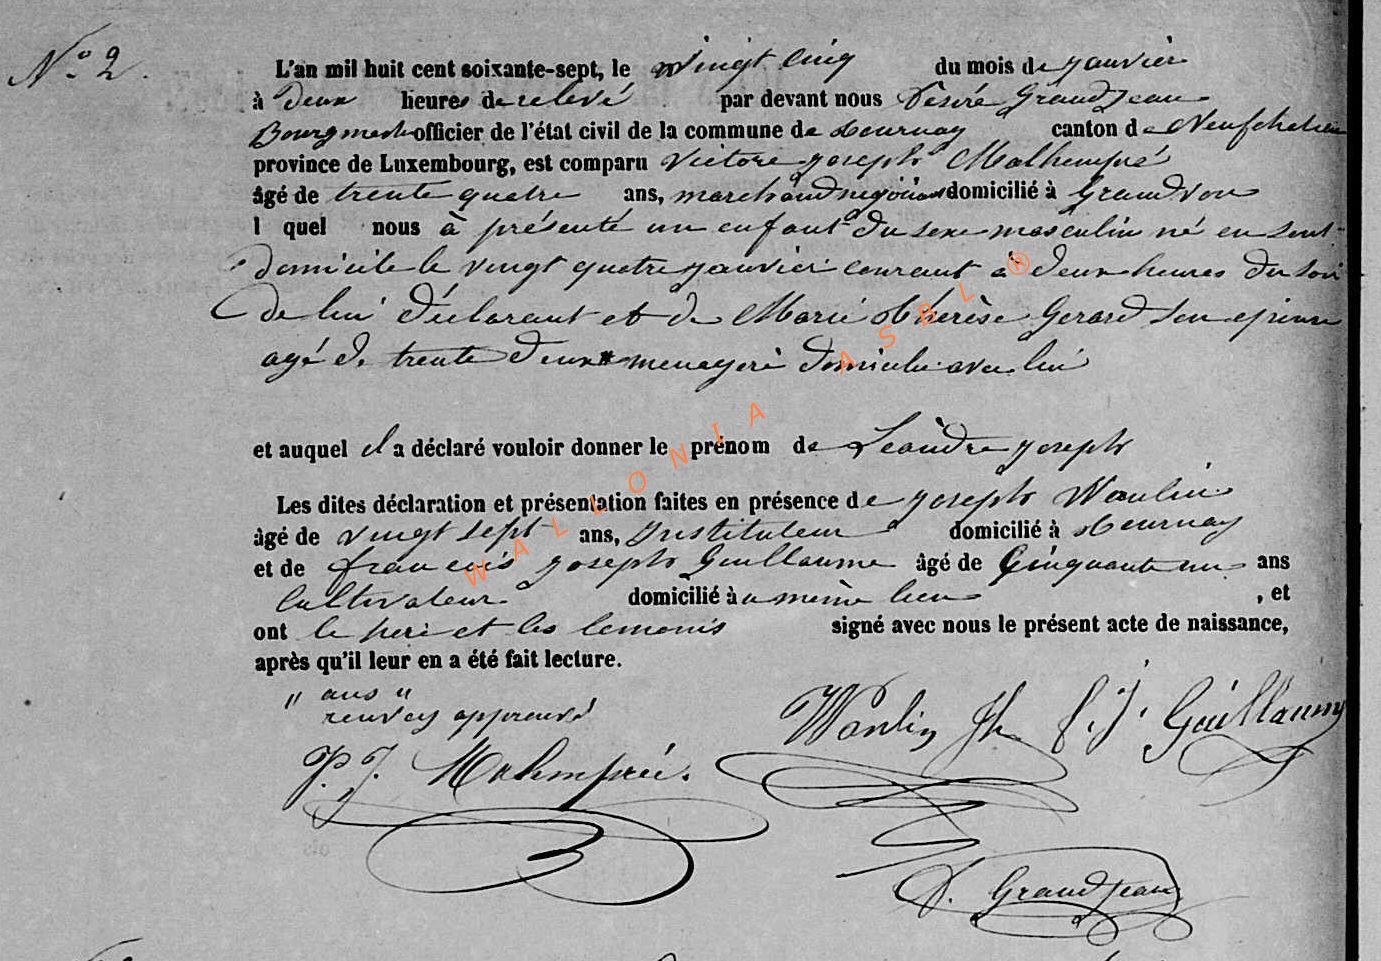 No 2.
L'an mil huit cent soixante-sept, le vingt cinq du mois de janvier
à deux heures de relevé par devant nous Désiré Grandjean
Bourgmestre officier de l'état civil de la commune de Tournay canton de Neufchateau
province de Luxembourg, est comparu Victore joseph Malhempré
âgé de trente quatre ans, marchand negociant domicilié à Grandvoir
l quel nous à présenté un enfant du sexe masculin né en sont
domicile le vingt quatre janvier courant à deux heures du soir
de lui déclarant et de Marie Thérèse Gerard son epouse
agé de trente deux menagere domicilie avec lui
et auquel il a déclaré vouloir donner le prénom de Léandre joseph
Les dites déclaration et présentation faites en présence de joseph Wanlin
âgé de vingt sept ans, Instituteur domicilié à Tournay
et de francois joseph Guillaume âgé de Cinquante un ans
Cultivateur domicilié à u même lieu , et
ont le pere et les temoins signé avec nous le présent acte de naissance,
après qu'il leur en a été fait lecture.
" ans "
renvoy approuvé
Wanlin Jh F. J. Guillaume
P. J. Malempré.
D. Grandjean
WALLONIA ASBL ®